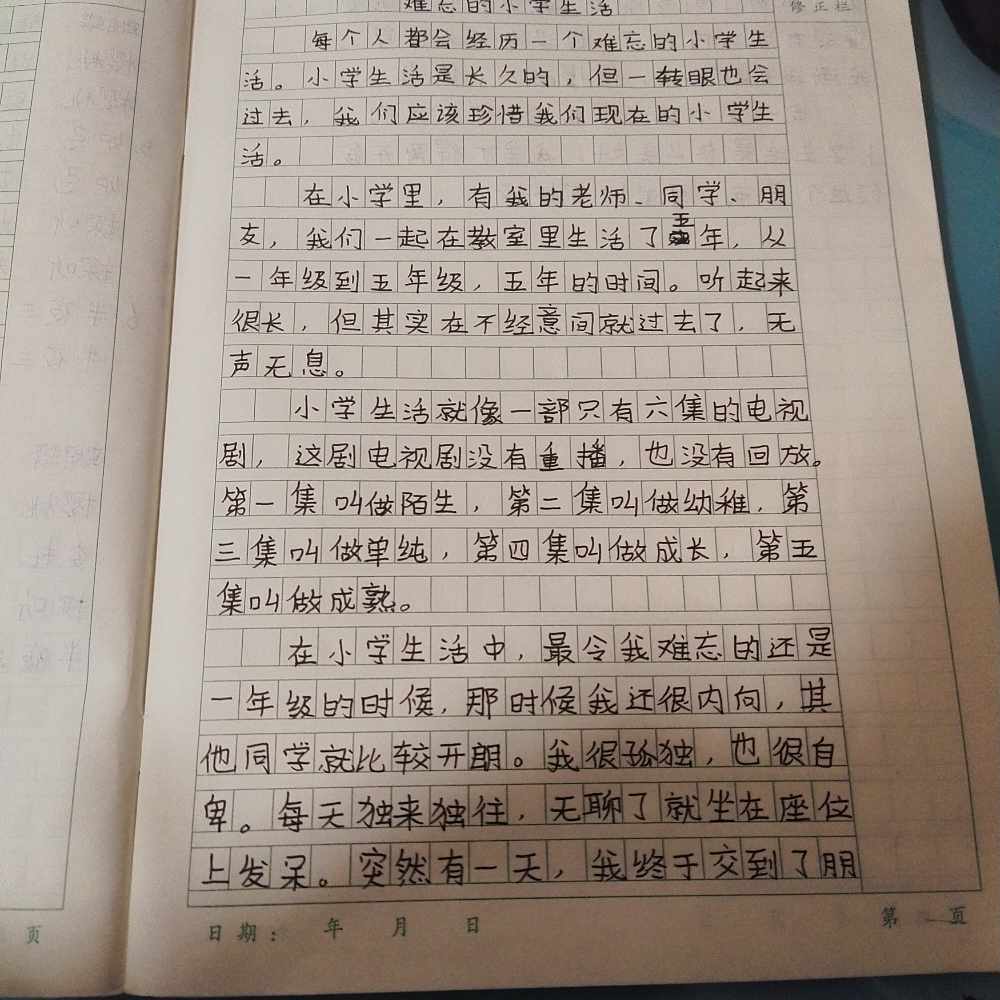 难忘的小学生活
修正栏
每个人都会经历一个难忘的小学生
活。小学生活是长久的，但一转眼也会
过去，我们应该珍惜我们现在的小学生
活。
在小学里，有我的老师、同学、朋
友，我们一起在教室里生活了五年，从
一年级到五年级，五年的时间。听起来
很长，但其实在不经意间就过去了，无
声无息。
小学生活就像一部只有六集的电视
剧，这剧电视剧没有重播，也没有回放。
第一集叫做陌生，第二集叫做幼稚，第
三集叫做单纯，第四集叫做成长，第五
集叫做成熟。
在小学生活中，最令我难忘的还是
一年级的时候，那时候我还很内向，其
他同学就比较开朗。我很孤独，也很自
卑。每天独来独往，无聊了就坐在座位
上发呆。突然有一天，我终于交到了朋
日期： 年 月 日
第 页
页